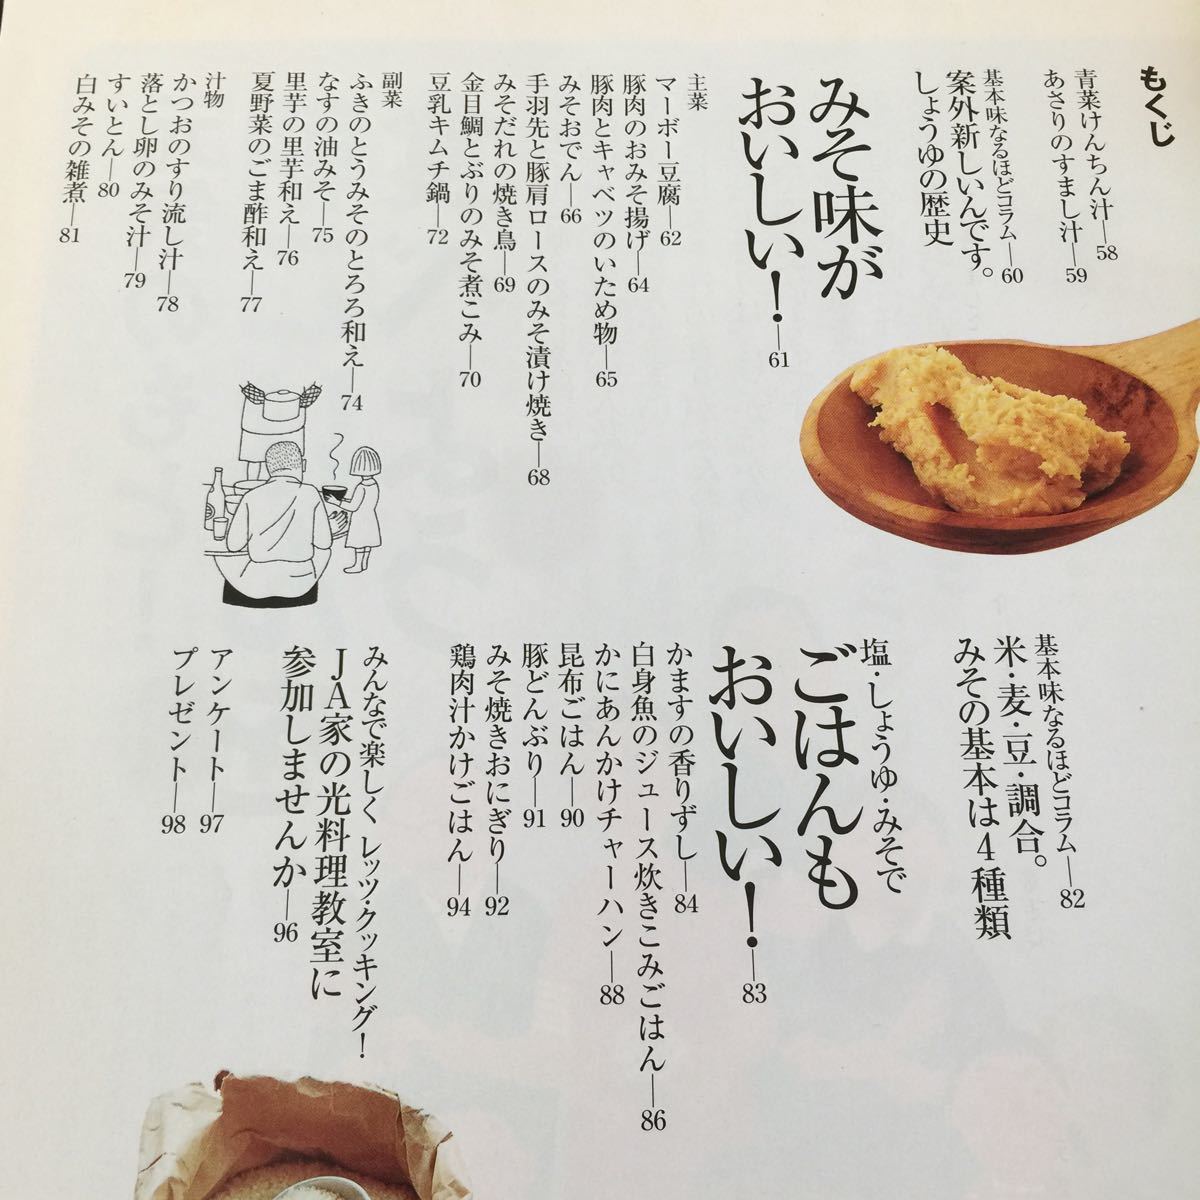 もくじ
青菜けんちん汁―58
あさりのすまし汁―59
基本味なるほどコラム―60
案外新しいんです。
しょうゆの歴史
みそ味が
おいしい！―61
主菜
マーボー豆腐―62
豚肉のおみそ揚げ―64
豚肉とキャベツのいため物―65
みそおでん―66
手羽先と豚肩ロースのみそ漬け焼き―68
みそだれの焼き鳥―69
金目鯛とぶりのみそ煮こみ―70
豆乳キムチ鍋―72
副菜
ふきのとうみそのとろろ和え―74
なすの油みそ―75
里芋の里芋和え―76
夏野菜のごま酢和え―77
汁物
かつおのすり流し汁―78
落とし卵のみそ汁―79
すいとん―80
白みその雑煮―81
基本味なるほどコラム―82
米・麦・豆・調合。
みその基本は4種類
塩・しょうゆ・みそで
ごはんも
おいしい！―83
かますの香りずし―84
白身魚のジュース炊きこみごはん―86
かにあんかけチャーハン―88
昆布ごはん―90
豚どんぶり―91
みそ焼きおにぎり―92
鶏肉汁かけごはん―94
みんなで楽しく レッツ・クッキング！
JA家の光料理教室に
参加しませんか―96
アンケート―97
プレゼント―98